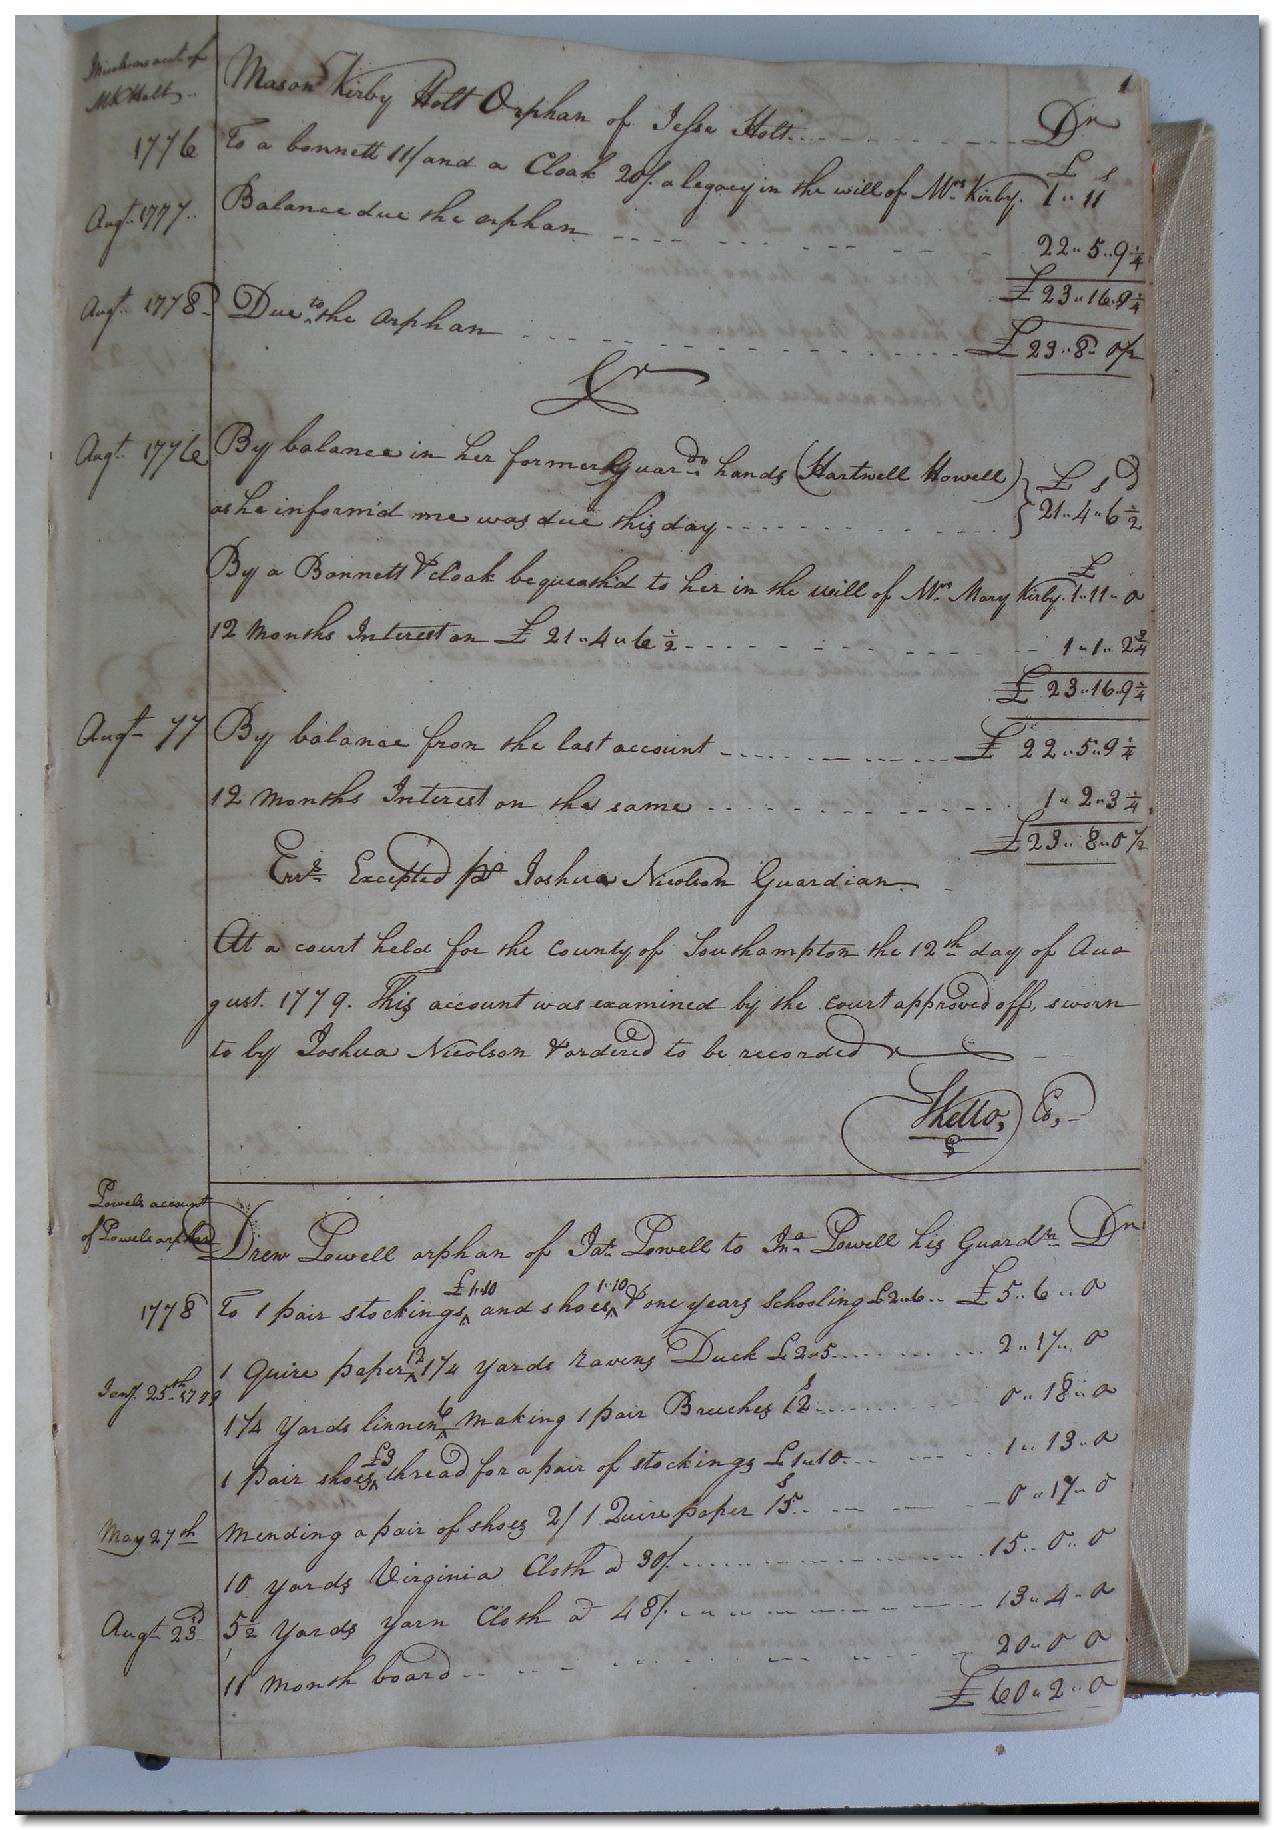 1
acct of
MK Holt
Mason Kirby Holt Orphan of Jesse Holt Dr
£ s
1776 To a bonnett 11/ and a Cloak 20/. a legacy in the will of Mrs. Kirby. 1 " 11
Augt. 1777. Balance due the orphan 22 " 5 " 9 1/4
£ 23 " 16 " 9 1/4
Augt. 1778 Due to the orphan £ 23 " 8 " 0 1/2
Cr
Augt. 1776 By balance in her former Guardn. hands (Hartwell Howell) £ s d
as he inform'd me was due this day 21 " 4 " 6 1/2
£
By a Bonnett & cloak bequeath'd to her in the will of Mrs. Mary Kirby. 1 " 11 " 0
12 Months Interest on £ 21 " 4 " 6 1/2 1 " 1 " 2 3/4
£ 23 " 16 " 9 1/4
Augt 77 By balance from the last account £ 22 " 5 " 9 1/4
12 Months Interest on the same 1 " 2 " 3 1/4
£ 23 " 8 " 0 1/2
Errs. Excepted pr Joshua Nicolson Guardian
At a court held for the County of Southampton the 12th day of Au
gust. 1779. This account was examined by the court approved off, sworn
to by Joshua Nicolson & ordered to be recorded
Powels account
of Powels orphan
Drew Powell orphan of Jat. Powell to Jno. Powell his Guardn. Dr
£ 1.10 1.10
1778 To 1 pair stockings ^ and shoes ^ & one years Schooling £ 2 " 6 £ 5 " 6 " 0
12
1 Quire paper ^ 1 1/4 yards ravens Duck £ 2 " 5 2 " 17 " 0
Jany. 25th 1779
6 s
1 1/4 Yards linnen ^ making 1 pair Breeches 12 0 " 18 " 0
£3
1 pair shoes ^ thread for a pair of stockings £ 1 " 10 1 " 13 " 0
s
May 27th mending a pair of shoes 2/ 1 Quire paper 15 0 " 17 " 0
10 yards Virginia Cloth @ 30/. 15 " 0 " 0
Augt 23d 5 1/2 Yards Yarn Cloth @ 48/. 13 " 4 " 0
11 Month board 20 " 0 " 0
£ 60 " 2 " 0